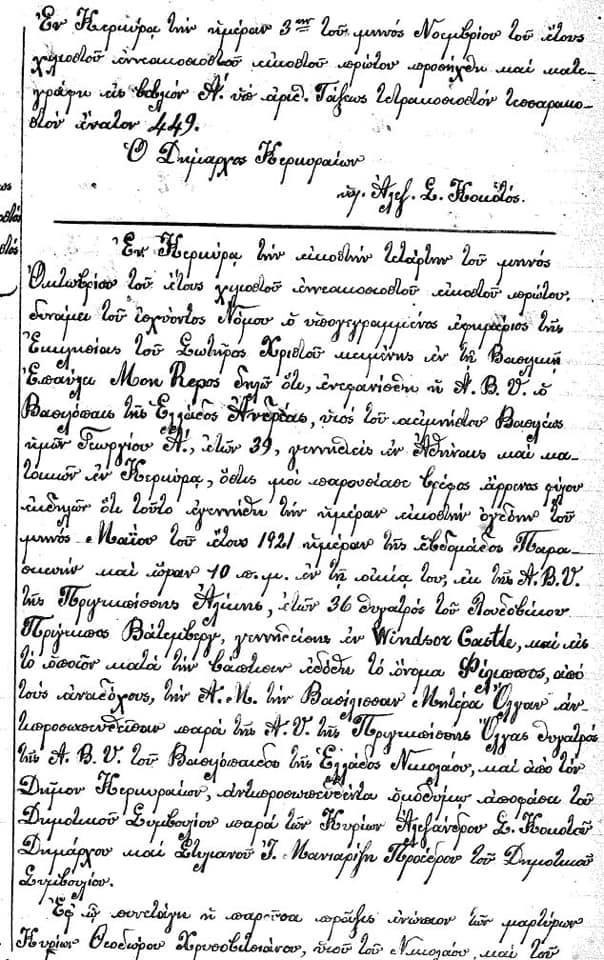 Ἐν Κερκύρᾳ τὴν ἡμέραν 3ην τοῦ μηνὸς Νοεμβρίου τοῦ ἔτους
χιλιοστοῦ ἐννεακοσιοστοῦ εἰκοστοῦ πρώτου προσήχθη καὶ κατε-
γράφη εἰς βιβλίον Α. ὑπ ἀριθ. Τάξεως τετρακοσιοστὸν τεσσαρακο-
στὸν ἔνατον 449.
Ὁ Δήμαρχος Κερκυραίων
ὑπ. Ἀλεξ. Σ. Κοκοτός.
Ἐν Κερκύρᾳ τὴν εἰκοστὴν τετάρτην τοῦ μηνὸς
Ὀκτωβρίου τοῦ ἔτους χιλιοστοῦ ἐννεακοσιοστοῦ εἰκοστοῦ πρώτου,
δυνάμει τοῦ ἰσχύοντος Νόμου ὁ ὑπογεγραμμένος ἐφημέριος τῆς
Ἐκκλησίας τοῦ Σωτῆρος Χριστοῦ κειμένης ἐν τῇ Βασιλικῇ
Ἐπαύλει Mon Repos δηλῶ ὅτι, ἐνεφανίσθη ἡ Α. Β. Υ. ὁ
Βασιλόπαις τῆς Ἑλλάδος Ἀνδρέας, υἱὸς τοῦ ἀειμνήστου Βασιλέως
ἡμῶν Γεωργίου Α., ἐτῶν 39, γεννηθεὶς ἐν Ἀθήναις καὶ κα-
τοικῶν ἐν Κερκύρᾳ, ὅστις μοὶ παρουσίασε βρέφος ἄρρενος φύλου
ἐκδηλῶν ὅτι τοῦτο ἐγεννήθη τὴν ἡμέραν εἰκοστὴν ὀγδόην τοῦ
μηνὸς Μαΐου τοῦ ἔτους 1921 ἡμέραν τῆς ἑβδομάδος Παρα-
σκευὴν καὶ ὥραν 10 π.μ. ἐν τῇ οἰκίᾳ του, ἐκ τῆς Α.Β.Υ.
τῆς Πριγκιπίσσης Ἀλίκης, ἐτῶν 36 θυγατρὸς τοῦ Λουδοβίκου
Πρίγκιπος Βάτεμβεργ, γεννηθείσης ἐν Windsor Castle, καὶ εἰς
τὸ ὁποῖον κατὰ τὴν βάπτισιν ἐδόθη τὸ ὄνομα Φίλιππος, ἀπὸ
τοὺς ἀναδόχους, τὴν Α. Μ. τὴν Βασίλισσαν Μητέρα Ὄλγαν ἀν-
τιπροσωπευθεῖσαν παρὰ τῆς Α. Υ. τῆς Πριγκιπίσσης Ὄλγας θυγατρὸς
τῆς Α. Β. Υ. τοῦ Βασιλόπαιδος τῆς Ἑλλάδος Νικολάου, καὶ ἀπὸ τὸν
Δῆμον Κερκυραίων, ἀντιπροσωπευθέντα ὁμοθύμῳ ἀποφάσει τοῦ
Δημοτικοῦ Συμβουλίου παρὰ τῶν Κυρίων Ἀλεξάνδρου Σ. Κοκοτοῦ
Δημάρχου καὶ Στυλιανοῦ Ἰ. Μανιαρίζη Προέδρου τοῦ Δημοτικοῦ
Συμβουλίου.
Ἐφ ᾧ συνετάγη ἡ παροῦσα πρᾶξις ἐνώπιον τῶν μαρτύρων
Κυρίων Θεοδώρου υἱοῦ τοῦ Νικολάου, καὶ τοῦ